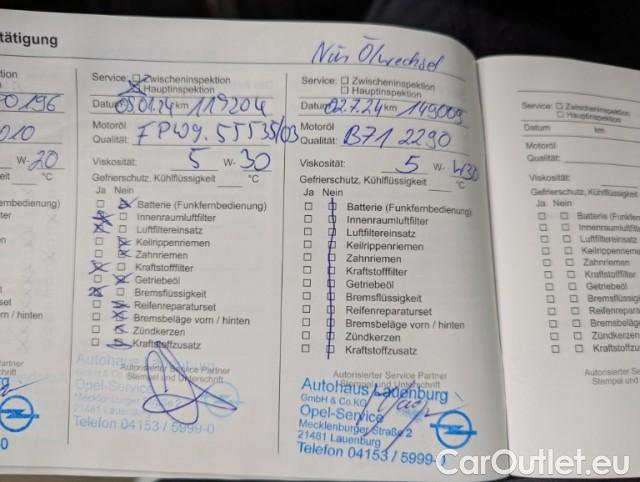 tätigung
Nur Ölwechsel
ktion
90196
010
W- 20
°C
rnbedienung)
filter
z
n
tariset
n / hinten
Partner
Service: Zwischeninspektion
Hauptinspektion
Datum 05.01.24 km 119204
Motoröl
Qualität:
Viskosität: 5 W- 30
Gefrierschutz, Kühlflüssigkeit °C
Ja Nein
Batterie (Funkfernbedienung)
Innenraumluftfilter
Luftfiltereinsatz
Keilrippenriemen
Zahnriemen
Kraftstofffilter
Getriebeöl
Bremsflüssigkeit
Reifenreparaturset
Bremsbeläge vorn / hinten
Zündkerzen
Kraftstoffzusatz
Autorisierter Service Partner
Stempel und Unterschrift
Autohaus Lauenburg
GmbH & Co.KG
Opel-Service
Mecklenburger Straße 2
21481 Lauenburg
Telefon 04153 / 5999-0
Service: Zwischeninspektion
Hauptinspektion
Datum 02.7.24 km 149009
Motoröl
Qualität: B71 2290
Viskosität: 5 W30
Gefrierschutz, Kühlflüssigkeit °C
Ja Nein
Batterie (Funkfernbedienung)
Innenraumluftfilter
Luftfiltereinsatz
Keilrippenriemen
Zahnriemen
Kraftstofffilter
Getriebeöl
Bremsflüssigkeit
Reifenreparaturset
Bremsbeläge vorn / hinten
Zündkerzen
Kraftstoffzusatz
Autorisierter Service Partner
Stempel und Unterschrift
Autohaus Lauenburg
GmbH & Co.KG
Opel-Service
Mecklenburger Straße 2
21481 Lauenburg
Telefon 04153 / 5999-0
Service: Zwischeninspektion
Hauptinspektion
Datum km
Motoröl
Qualität:
Viskosität:
Gefrierschutz, Kühlflüssig
Ja Nein
Batterie (Funkfe
Innenraumluftf
Luftfiltereinsatz
Keilrippenrieme
Zahnriemen
Kraftstofffilter
Getriebeöl
Bremsflüssig
Reifenrepara
Bremsbeläge
Zündkerzen
Kraftstoffzu
Autorisierter S
Stempel un
CarOutlet.eu